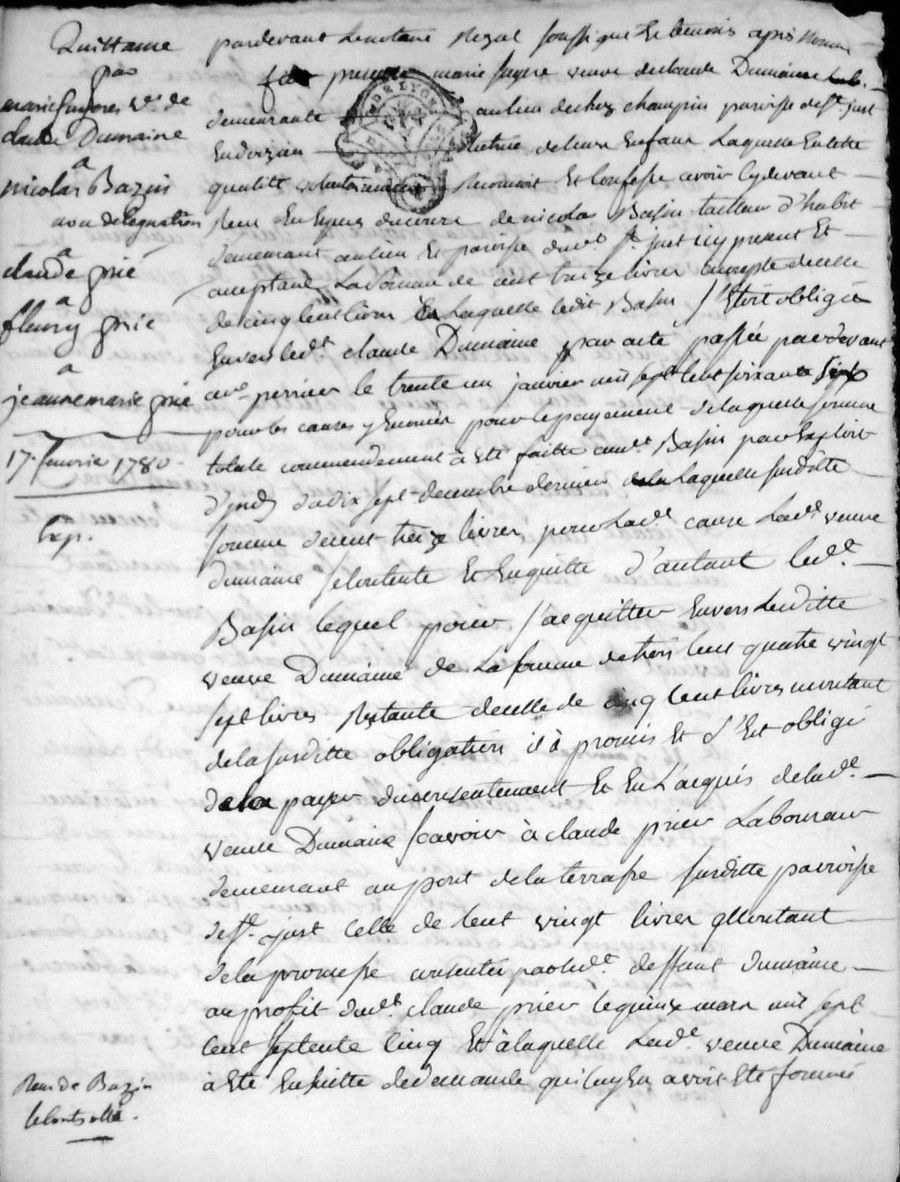 Quittance
par
marie fayere v.e de
claude Dumaine
a
nicolas Bazin
avec delegation
a
claude prié
a
fleury prié
a
jeanne marie prié
17. janvrie 1780.
Exp.
Reçu de Bazin
le controlle.
DE LYON
pardevant Le notaire Royal soussigné Et temoins après nommé
fut presente marie fayere veuve de claude Dumaine
demeurante au lieu de chez champrin paroisse de s.t just
En doizieu tutrice de leurs Enfants Laquelle En cette
qualité volontairement Reconnoit Et confesse avoir cy devant
Reçu En Especes du cours de nicolas Basin tailleur d'habit
demeurant au lieu Et paroisse dud.t s.t just icy present Et
acceptant La somme de cent treize livres acompte de celle
de cinq cent livres En Laquelle ledit Basin s'Etoit obligée
Envers led.t claude Dumaine par acte passée pardevant
me perrier le trente un janvier mil sept cent soixante six
pour les causes y Enoncées pour le payement de laquelle somme
totale commendement a Eté faitte aud.t Basin par Exploit
d' du dix sept decembre dernier de la Laquelle susditte
somme de cent treize livres pour Lad.e cause Lad.e veuve
Dumaine se contente Et En quitte d'autant led.t
Basin lequel pour s'acquitter Envers Laditte
veuve Dumaine de La somme de trois cent quatre vingt
sept livres Restante de celle de cinq cent livres montant
de la susditte obligation il à promis Et s'Est obligé
de la payer du consentement Et En L'acquis de lad.e
veuve Dumaine scavoir à claude prier Laboureur
demeurant au pont de la terrasse susditte parroisse
de s.t just celle de Cent vingt livres Montant
de la promesse consentie par led.t deffunt dumaine
au profit dud.t claude prier le quinze mars mil sept
cent septente cinq Et à laquelle Lad.e veuve Dumaine
à Eté Ensuitte de demande qui luy En avoit Eté formée